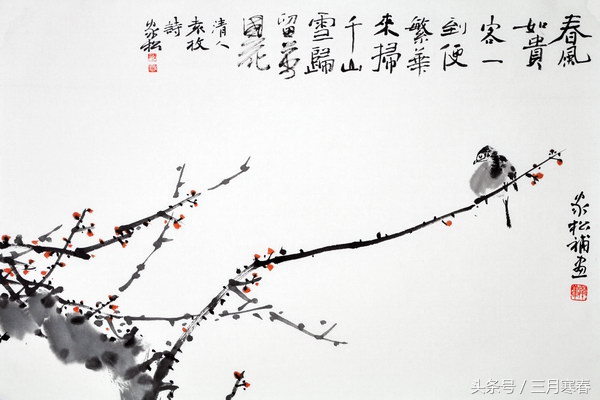 春風
如貴
客一
到便
繁華
來掃
千山
雪歸
留萬
國花
清人
袁枚
詩
家松
家松補畫
头条号 / 三月寒春